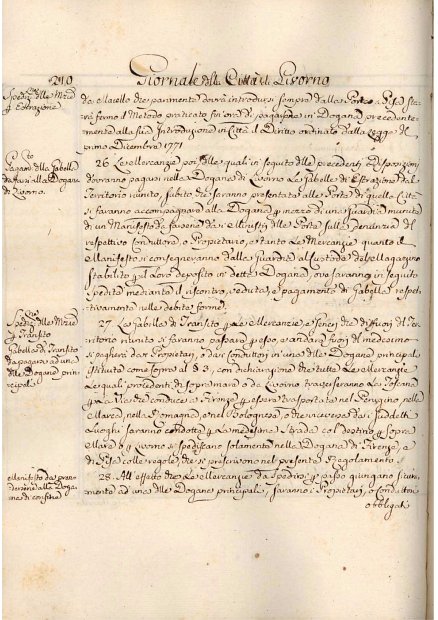 210
Giornale della Città di Livorno
Spediz.ne delle Merci
p Estrazione
da Macello che parimente dovrà introdursi sempre dalla Porta a Pisa sta-
rà fermo il Metodo praticato fin'ora di pagarsi in Dogana precedente-
mente alla sua Introduzione in Città il Diritto ordinato dalla Legge del
primo Dicembre 1771
Pagam.to delle Gabelle
da farsi alla Dogana
di Livorno
26. Le Mercanzie poi, delle quali in seguito delle precedenti Disposizioni
dovranno pagarsi nella Dogana di Livorno Le Gabelle di Estrazione dal
Territorio riunito, subito che saranno presentate alle Porte di quella Città
si faranno accompagnare alla Dogana p mezzo di una Guardia munita
di un Manifesto da farsene da i Ministri delle Porte sulla Denunzia del
respettivo Conduttore, o Proprietario, e tanto Le Mercanzie quanto il
Manifesto si consegneranno dalla Guardia al Custode del Magazzino
stabilito p il Loro deposito in detta Dogana, ove saranno in seguito
spedite mediante il riscontro, veduta, e pagamento di Gabella respet-
tivamente nelle debite forme.
Spediz.ne delle Merci
p Transito
Gabella di Transito
da pagarsi ad una
delle Dogane prin-
cipali
27. La Gabella di Transito p Le Mercanzie, e Generi che di fuori del Ter-
ritorio riunito si faranno passare p esso, e andare fuori del medesimo
si pagherà da i Proprietari, o da i Conduttori in una delle Dogane principali
istituite come sopra al § 3, con dichiarazione che tutte Le Mercanzie
Le quali procedenti di sopra mare o da Livorno traverseranno La Toscana
p La Via che conduce a Firenze p essere trasportate nel Perugino nella
Marca, nella Romagna, e nel Bolognese, o che viceversa da i suddetti
Luoghi saranno condotte p La medesima strada col destino p sopra
Mare o p Livorno si spediscano solamente nella Dogana di Firenze, e
di Pisa colle regole, che si prescrivono nel presente Regolamento
Manifesto da pren-
dersi alle Doga-
ne di confine
28. All'effetto che Le Mercanzie da spedirsi p passo giungano sicura-
mente ad una delle Dogane principali, saranno i Proprietari, o Conduttori
obbligati